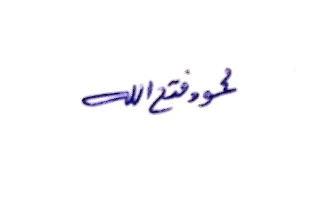 محمود فتح الله